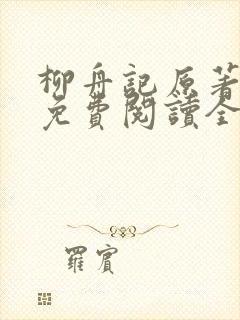 柳舟記原著
免費閱讀全
羅賓